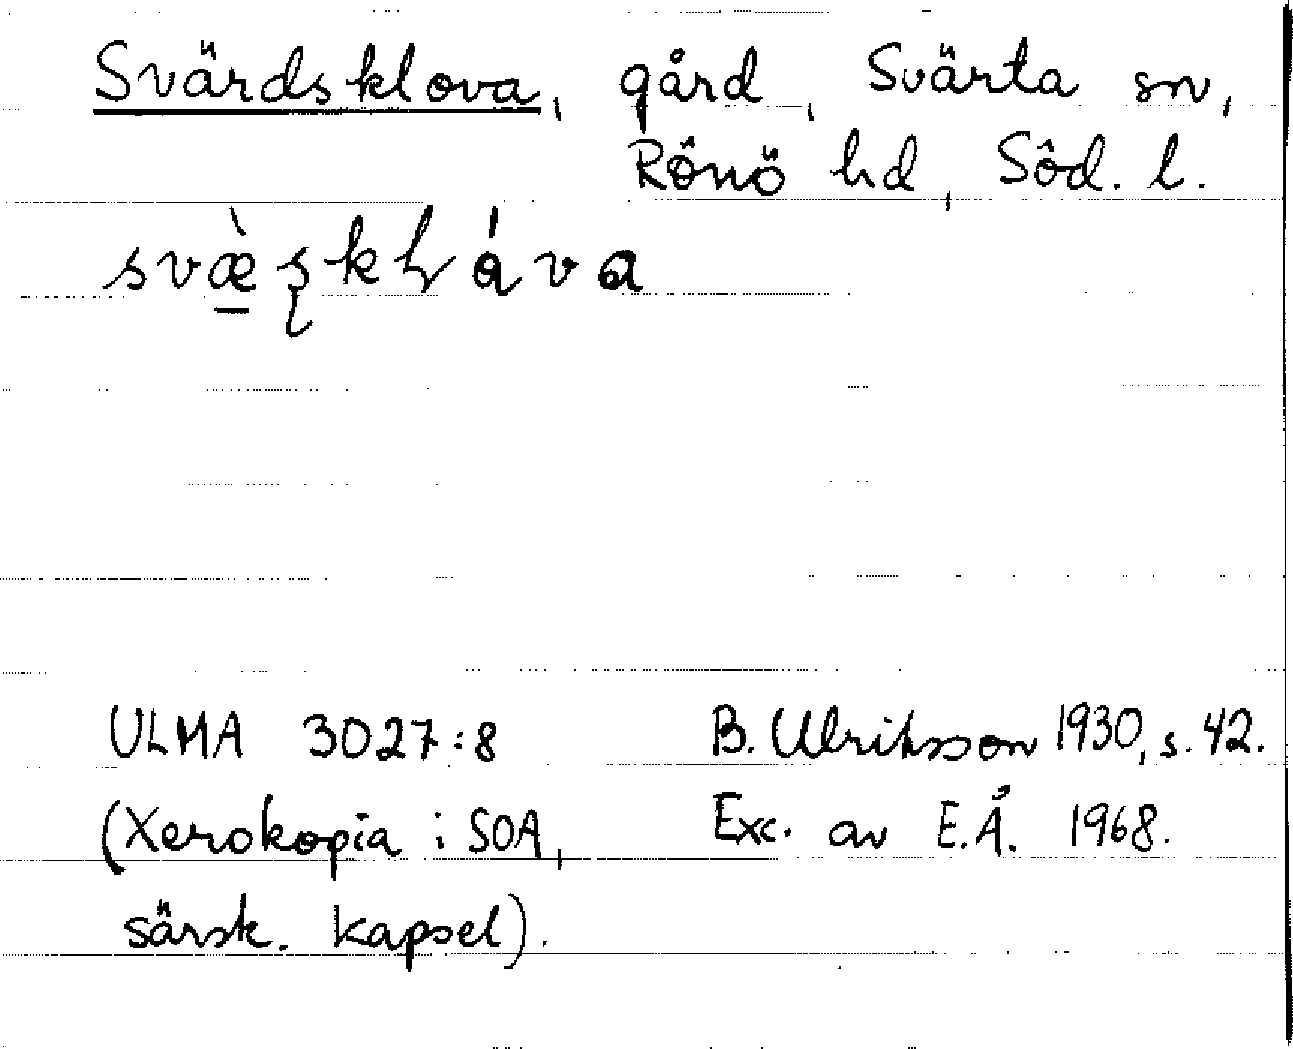 Svärdsklova, gård, Svärta sn,
Rönö hd, Söd. l.
svæ̱̀ʂkɽáva
ULMA 3027:8 B. Ulriksson 1930, s. 42.
(Xerokopia i SOA, Exc. av E.Å. 1968.
särsk. kapsel).